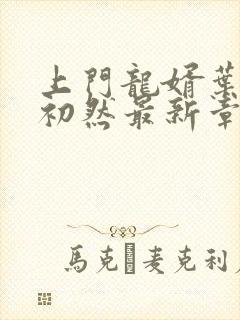 上門龍婿葉
初然最新章
馬克 麥克利